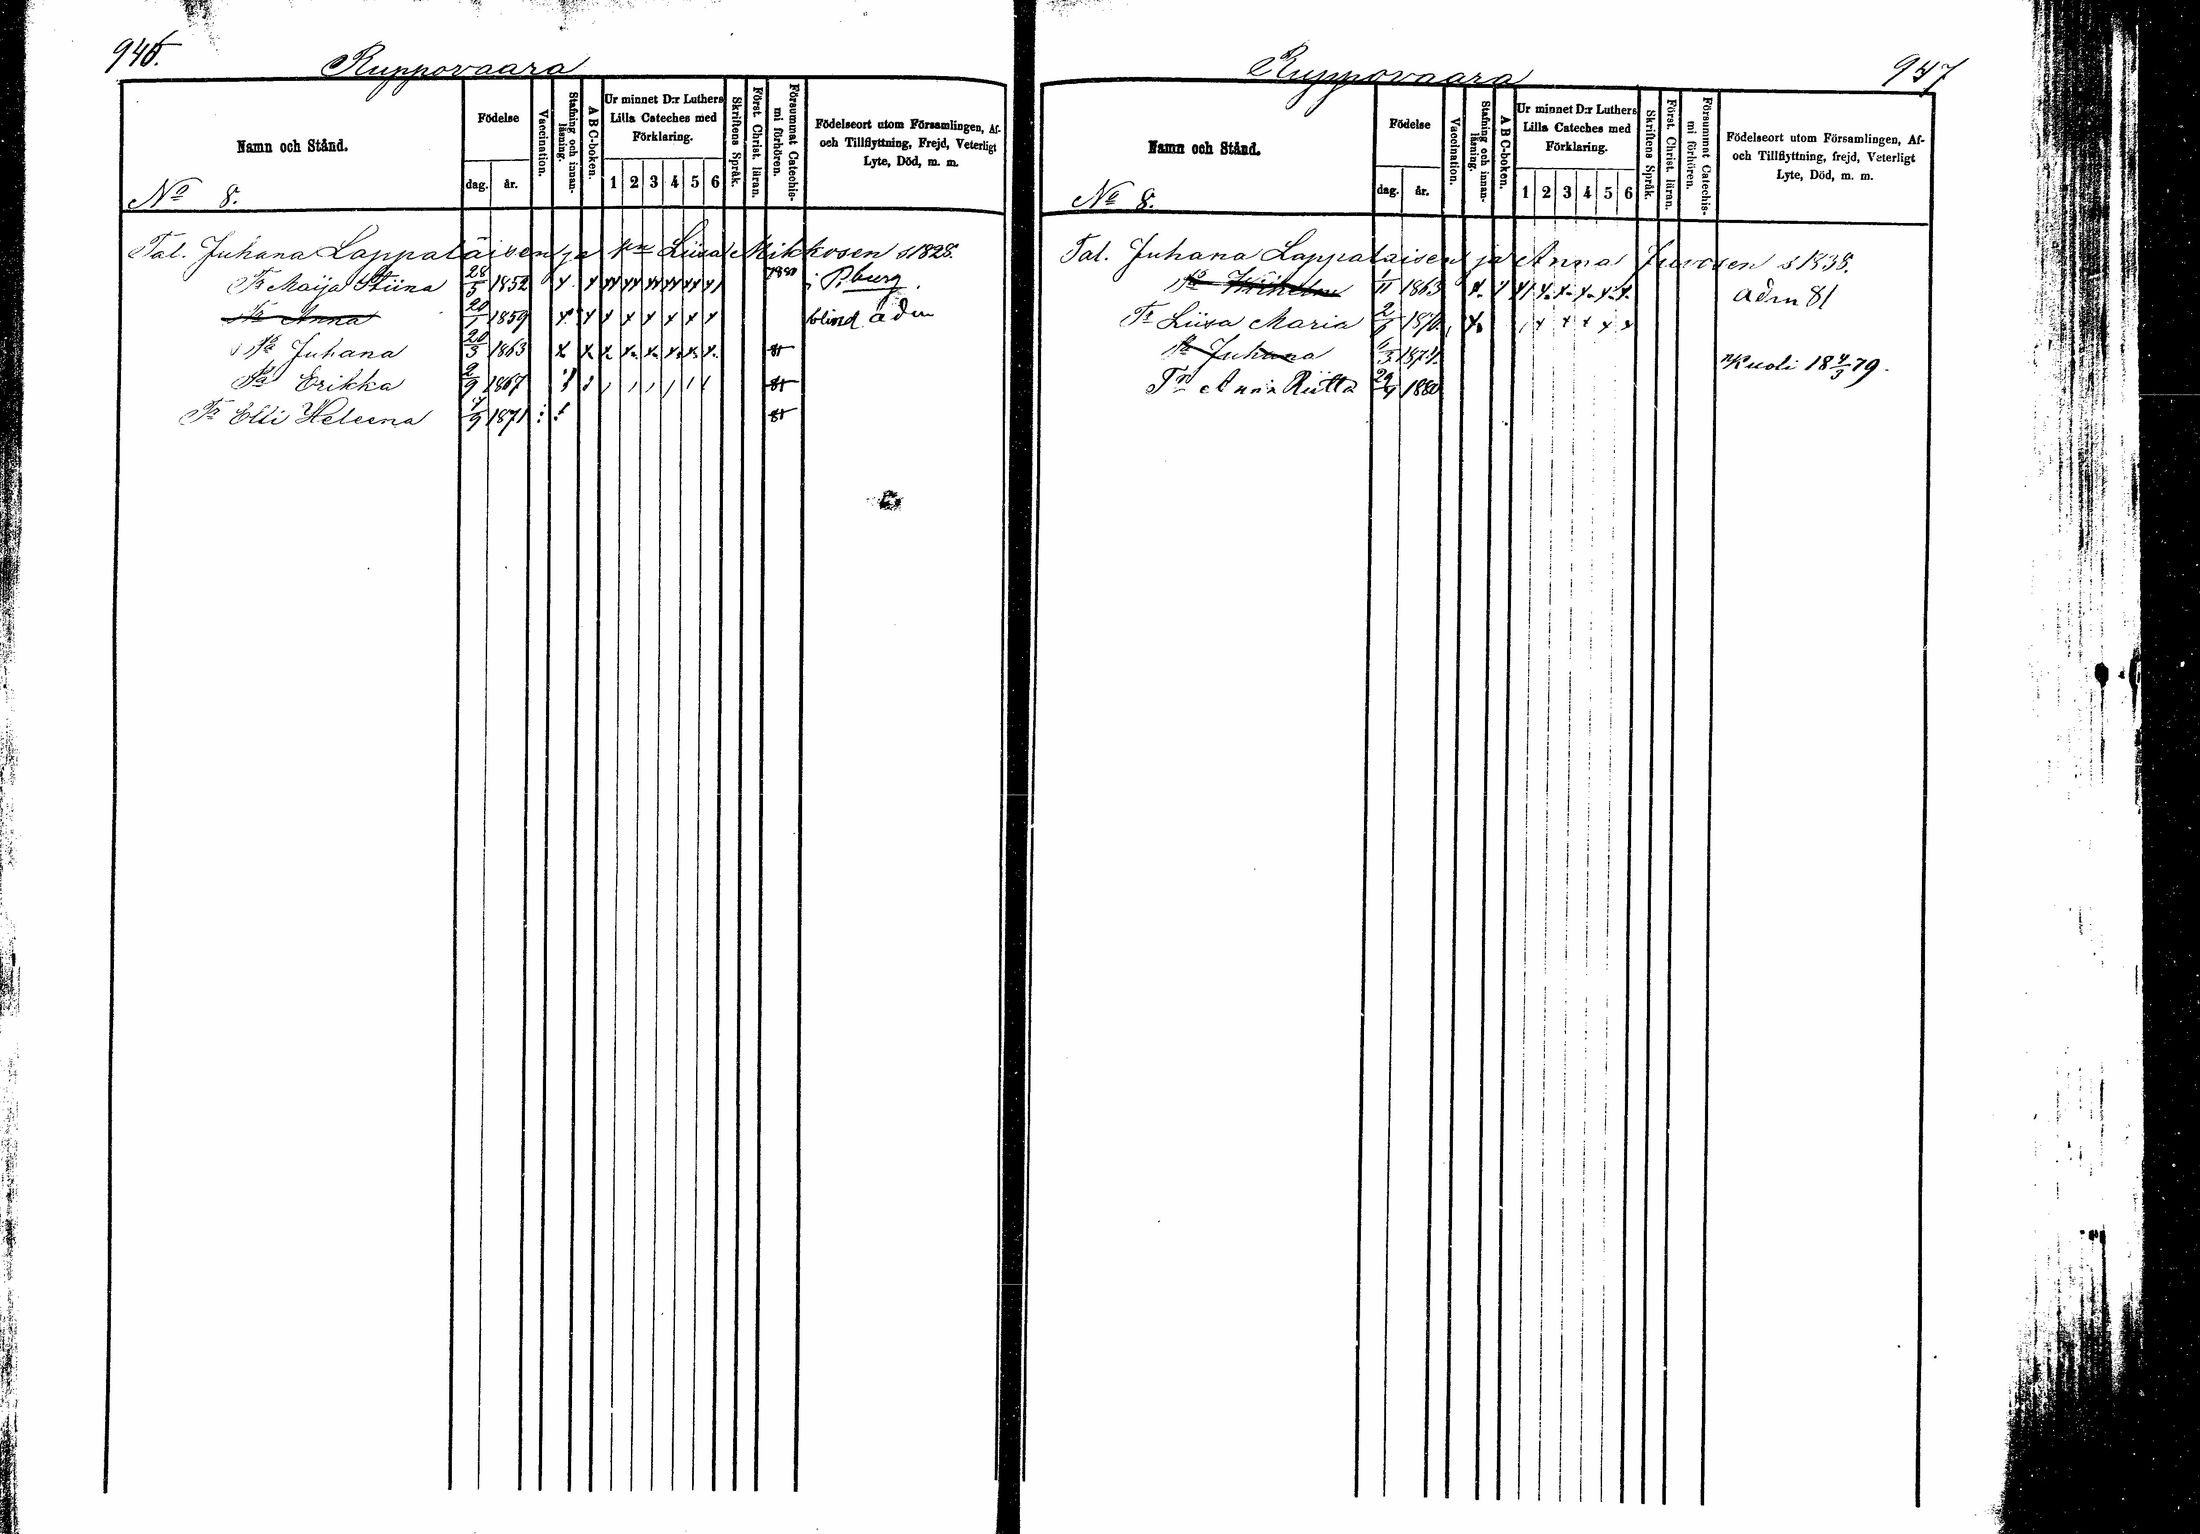 946.
Ruppovaara
Namn och Stånd.
Födelse
dag. år.
Vaccination.
Stafning och innan-läsning.
A B C-boken.
Ur minnet D:r Luthers
Lilla Cateches med
Förklaring.
1 2 3 4 5 6
Skriftens Språk.
Först. Christ. läran.
Försummat Catechis-mi förhören.
Födelseort utom Församlingen, Af-
och Tillflyttning, Frejd, Veterligt
Lyte, Död, m. m.
No 8.
Tal. Juhana Lappalaisen ja Liisa Mikkosen s 1828.
Tr Maija Stiina 28/5 1852 1880 i P.burg.
Tr Anna 20/1 1859 blind adm
Pa Juhana 20/3 1863 81
Pa Erikka 2/9 1867 81
Tr Elli Heleena 4/9 1871 81
947
Ruppovaara
Namn och Stånd.
Födelse
dag. år.
Vaccination.
Stafning och innan-läsning.
A B C-boken.
Ur minnet D:r Luthers
Lilla Cateches med
Förklaring.
1 2 3 4 5 6
Skriftens Språk.
Först. Christ. läran.
Försummat Catechis-mi förhören.
Födelseort utom Församlingen, Af-
och Tillflyttning, frejd, Veterligt
Lyte, Död, m. m.
No 8.
Tal. Juhana Lappalaisen ja Anna Juvosen s 1838.
Pa Wilhelm 1/11 1863 adm 81
Tr Liisa Maria 1870
Pa Juhana 6/3 1874 Kuoli 18 4/3 79.
Tr Anna Riitta 29/9 1880